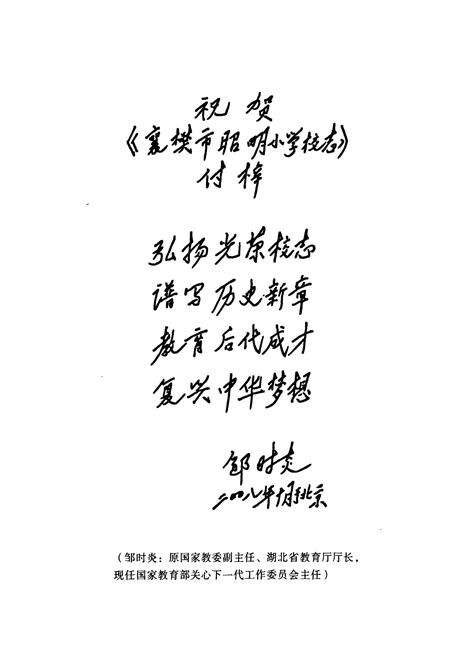 祝贺
《襄樊市昭明小学校志》
付梓
弘扬光荣校志
谱写历史新章
教育后代成才
复兴中华梦想
邹时炎
二〇〇八年十月于北京
（邹时炎：原国家教委副主任、湖北省教育厅厅长，
现任国家教育部关心下一代工作委员会主任）